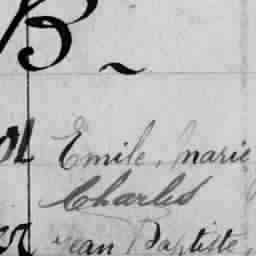 B
Emile, marie
Charles
Jean Baptiste,